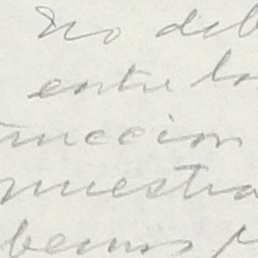 No deb
entre lo
trucción
nuestra
bemos p